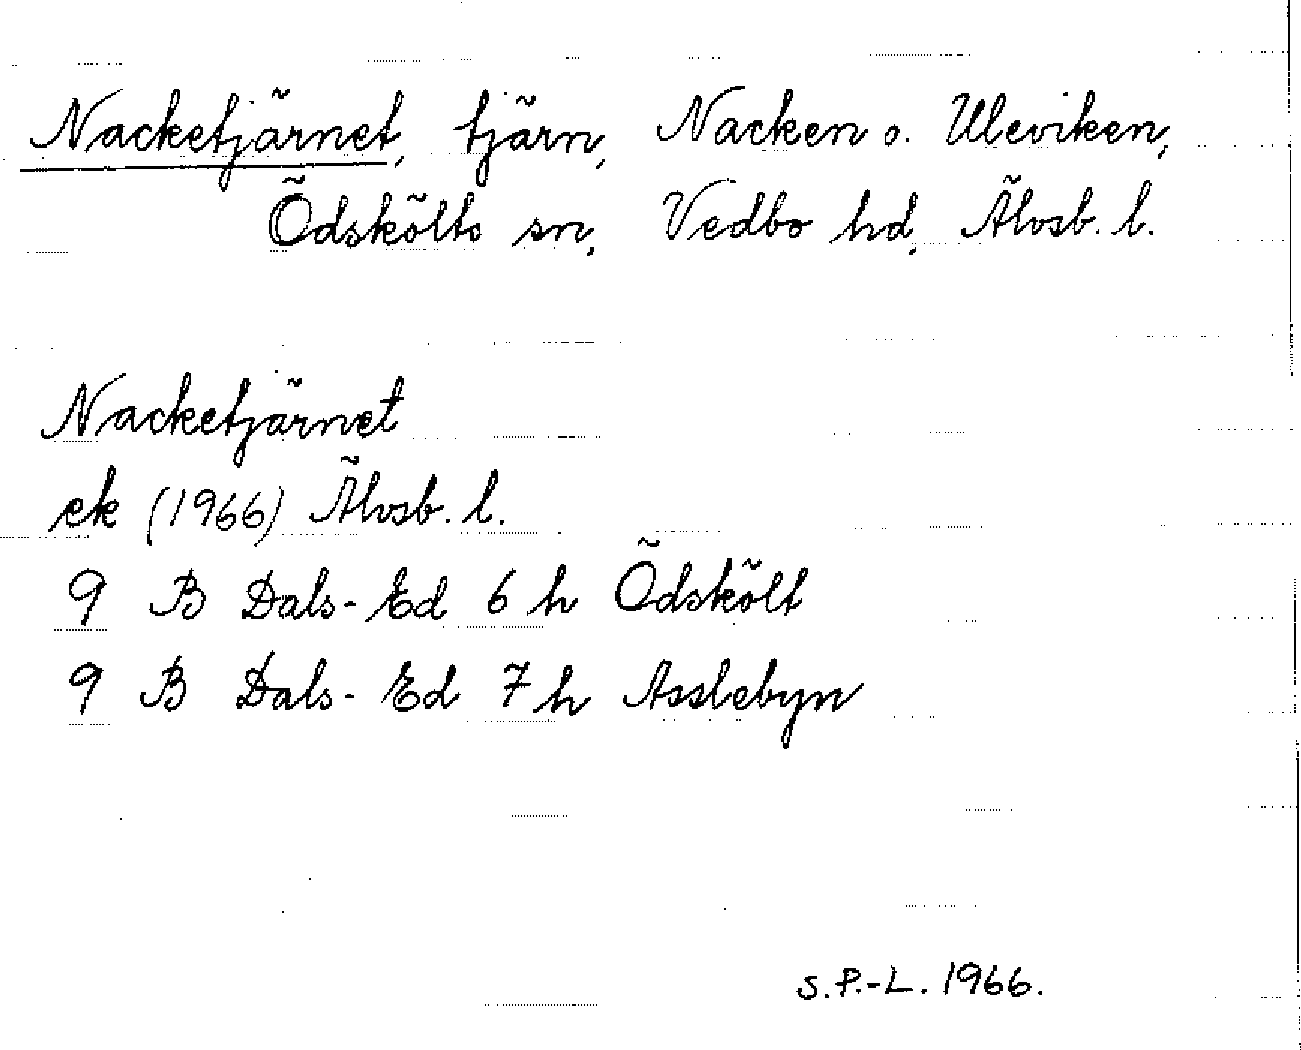 Nacketjärnet, tjärn, Nacken o. Uleviken,
Ödskölts sn, Vedbo hd, Älvsb. l.
Nacketjärnet
ek (1966) Älvsb. l.
9 B Dals-Ed 6 h Ödskölt
9 B Dals-Ed 7 h Asslebyn
S.P.-L. 1966.